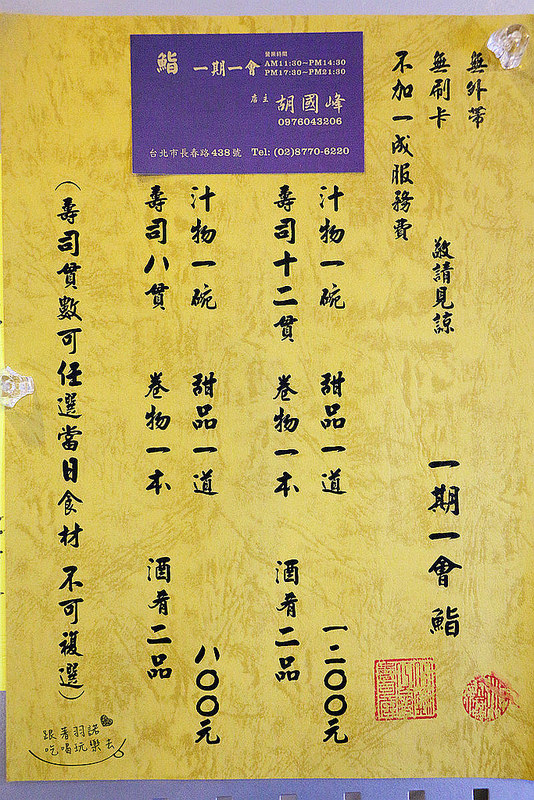 鮨 一期一會
營業時間
AM11:30~PM14:30
PM17:30~PM21:30
店主 胡國峰
0976043206
台北市長春路438號 Tel: (02)8770-6220
無外帶
無刷卡 敬請見諒 一期一會 鮨
不加一成服務費
汁物一碗 甜品一道 一二〇〇元
壽司十二貫 卷物一本 酒肴二品
汁物一碗 甜品一道 八〇〇元
壽司八貫 卷物一本 酒肴二品
(壽司貫數可任選當日食材 不可複選)
跟著羽諾
吃喝玩樂去